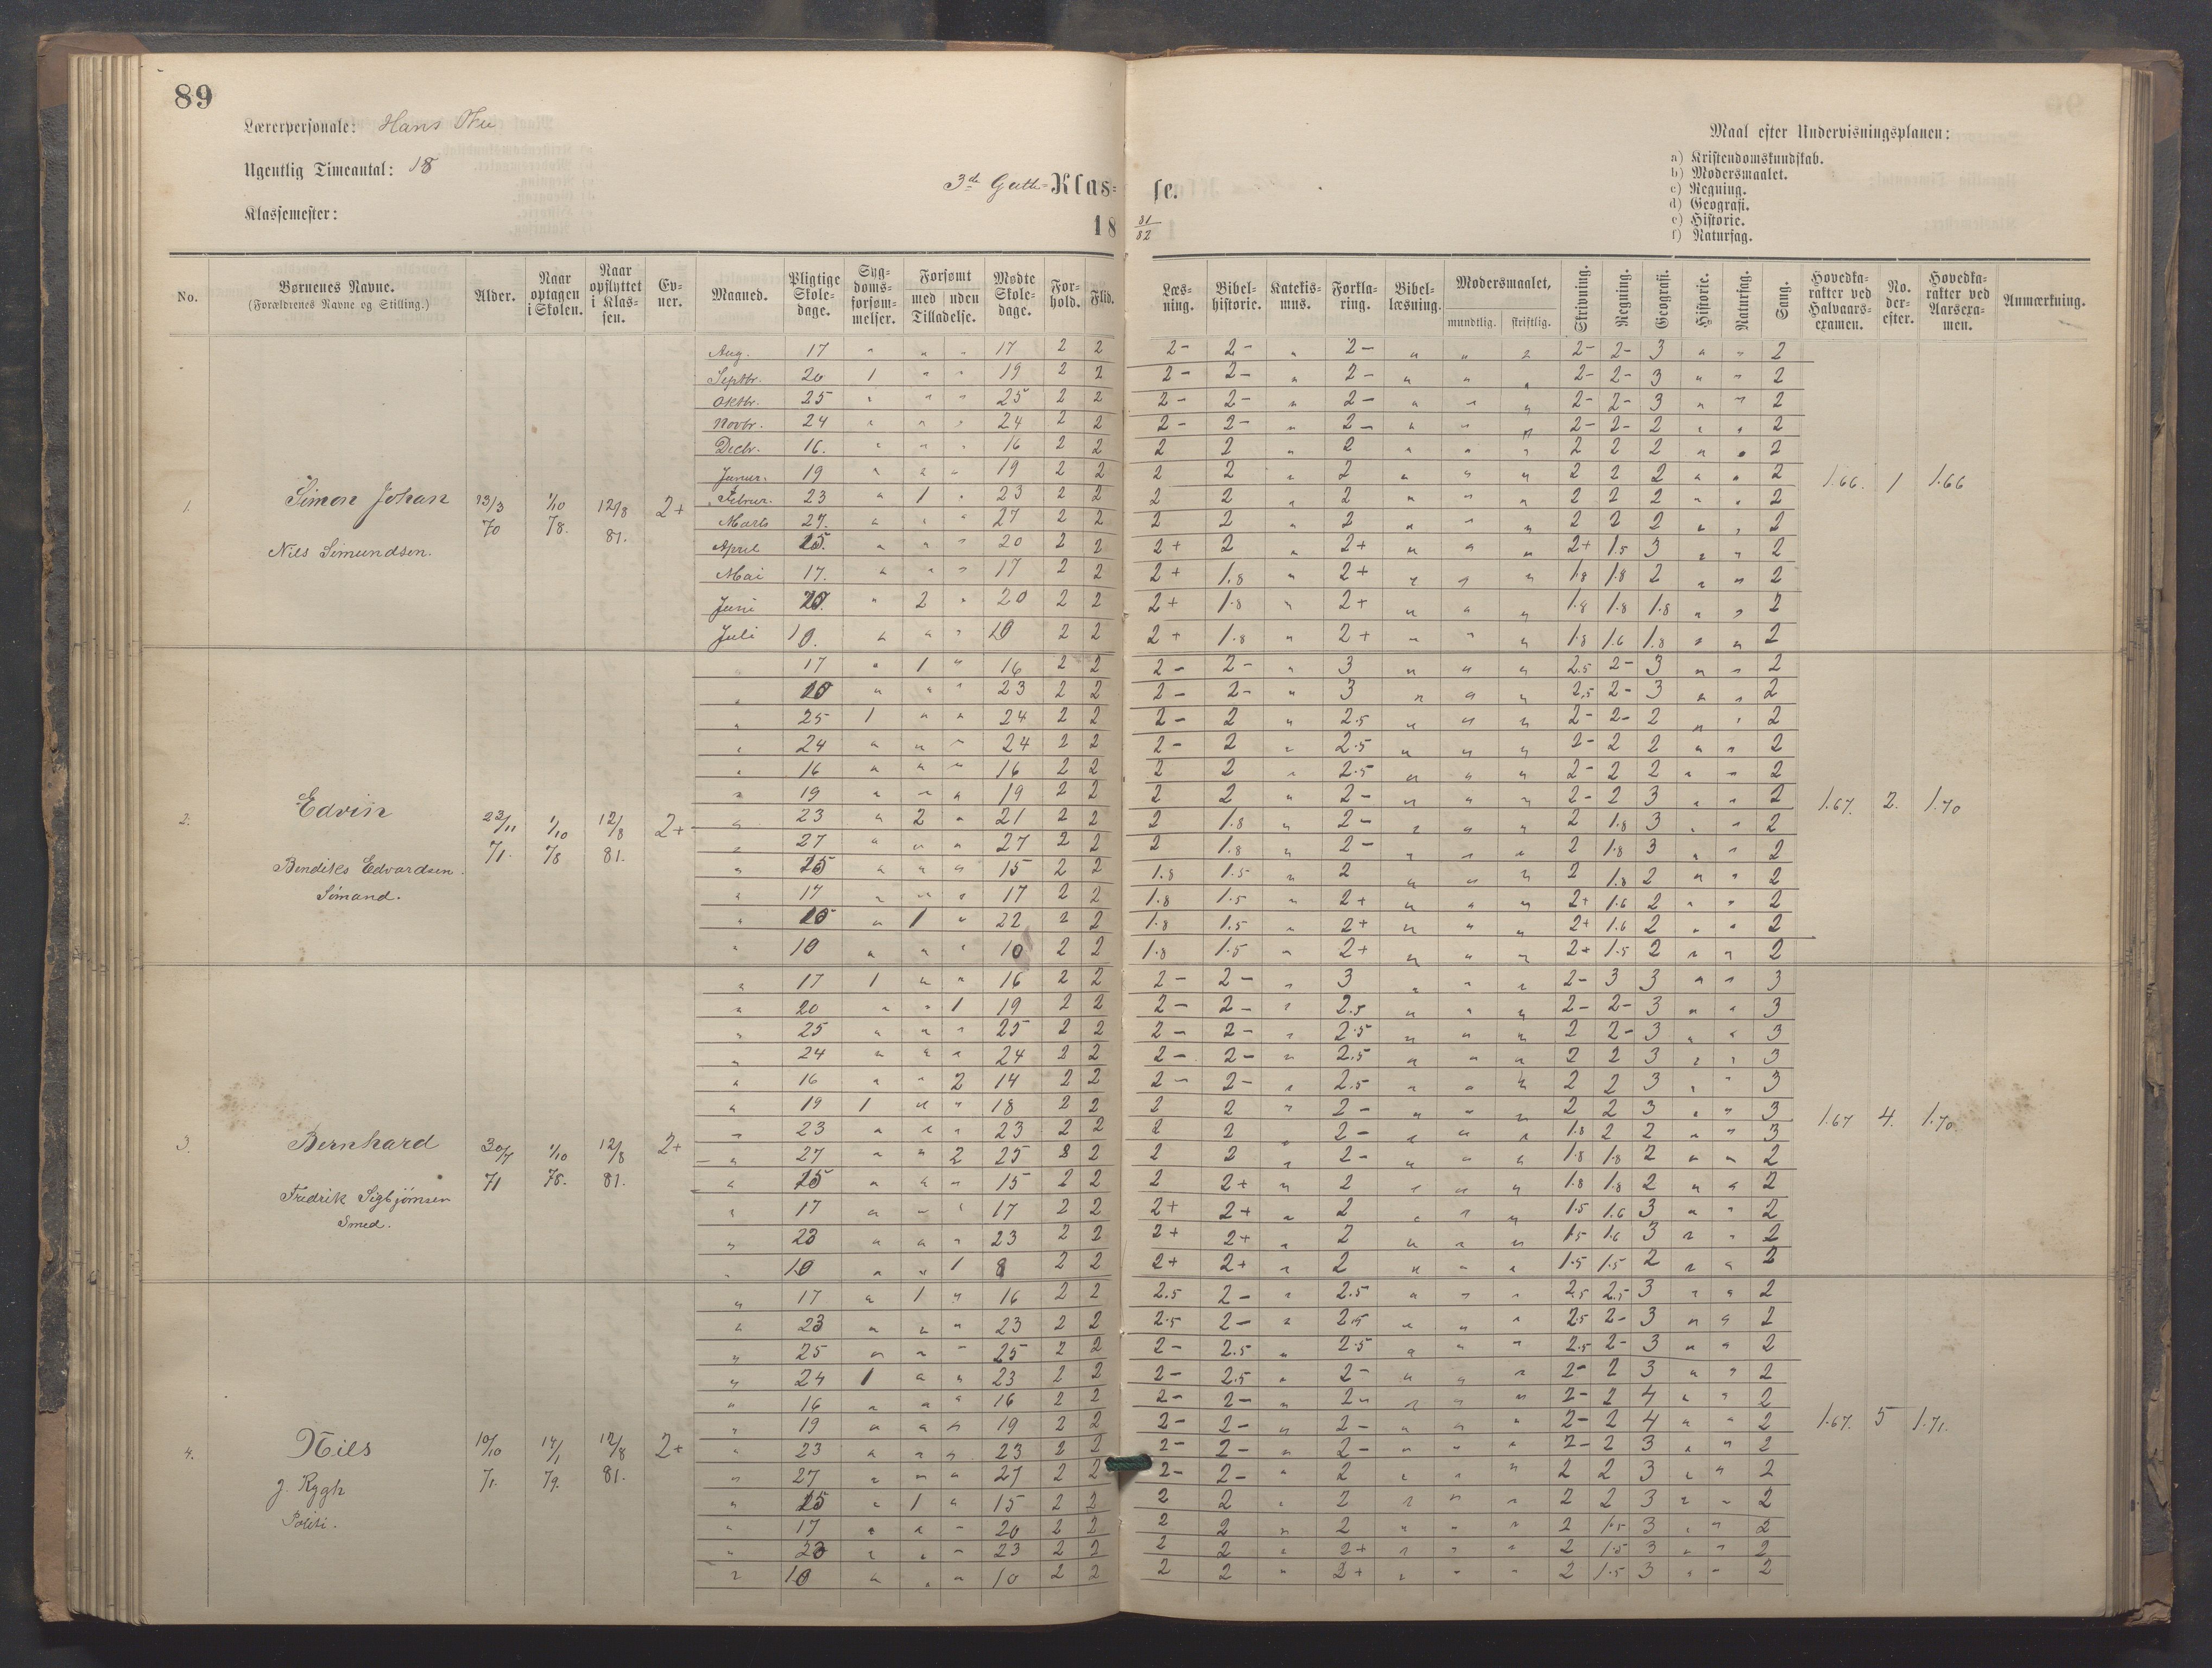 89
Lærerpersonale: Hans
Ugentlig Timeantal: 18
Klassemester:
3de Gutte- Klas-
se.
18
81
82
Maal efter Undervisningsplanen:
a) Kristendomskundskab.
b) Modersmaalet.
c) Regning.
d) Geografi.
e) Historie.
f) Naturfag.
No.
Børnenes Navne.
(Forældrenes Navne og Stilling.)
Alder.
Naar optagen i Skolen.
Naar opflyttet i Klas-sen.
Ev-ner.
Maaned.
Pligtige Skole-dage.
Syg-doms-forsøm-melser.
Forsømt
med uden
Tilladelse.
Mødte Skole-dage.
For-hold.
Flid.
Læs-ning.
Bibel-historie.
Katekis-mus.
Forkla-ring.
Bibel-læsning.
Modersmaalet,
mundtlig. skriftlig.
Skrivning.
Regning.
Geografi.
Historie.
Naturfag.
Sang.
Hovedka-rakter ved Halvaars-examen.
No. der-efter.
Hovedka-rakter ved Aarsexa-men.
Anmærkning.
1.
Simon Johan
Nils Simundsen.
13/3 70
1/10 78.
12/8 81.
2+
Aug. 17 " " " 17 2 2 2- 2- " 2- " " " 2- 2- 3 " " 2
Septbr. 20 1 " " 19 2 2 2- 2- " 2- " " " 2- 2- 3 " " 2
Oktbr. 25 " " " 25 2 2 2- 2- " 2- " " " 2- 2- 3 " " 2
Novbr. 24 " " " 24 2 2 2- 2- " 2- " " " 2- 2- 2 " " 2
Decbr. 16. " " " 16 2 2 2 2 " 2 " " " 2 2 2 " " 2
Januar. 19 " " " 19 2 2 2 2 " 2 " " " 2 2 2 " " 2
Februar. 23 " 1 " 23 2 2 2 2 " 2 " " " 2 2 2 " " 2
Marts 27. " " " 27 2 2 2 2 " 2 " " " 2 2 2 " " 2
April 15. " " " 20 2 2 2+ 2 " 2+ " " " 2+ 1.5 3 " " 2
Mai 17. " " " 17 2 2 2+ 1.8 " 2+ " " " 1.8 1.8 2 " " 2
Juni 20. " 2 " 20 2 2 2+ 1.8 " 2+ " " " 1.8 1.8 1.8 " " 2
Juli 10. " " " 10 2 2 2+ 1.8 " 2+ " " " 1.8 1.6 1.8 " " 2
1.66. 1 1.66
2.
Edvin
Bendiks Edvardsen.
Sømand.
23/11 71.
1/10 78
12/8 81.
2+
17 " 1 " 16 2 2 2- 2- " 3 " " " 2.5 2- 3 " " 2
" " " " 23 2 2 2- 2- " 3 " " " 2.5 2- 3 " " 2
" 25 1 " " 24 2 2 2- 2 " 2.5 " " " 2- 2- 2 " " 2
" 24 " " " 24 2 2 2- 2 " 2.5 " " " 2- 2 2 " " 2
" 16 " " " 16 2 2 2 2 " 2.5 " " " 2- 2 2 " " 2
" 19 " " " 19 2 2 2 2 " 2- " " " 2- 2 3 " " 2
" 23 " 2 " 21 2 2 2 1.8 " 2- " " " 2 1.8 3 " " 2
" 27 " " " 27 2 2 2 1.8 " 2- " " " 2 1.8 3 " " 2
" 15 " " " 15 2 2 1.8 1.5 " 2 " " " 2 1.8 2 " " 2
" 17 " " " 17 2 2 1.8 1.5 " 2+ " " " 2+ 1.6 2 " " 2
" " 1 " 22 2 2 1.8 1.5 " 2+ " " " 2+ 1.6 2 " " 2
" 10 " " " 10 2 2 1.8 1.5 " 2+ " " " 2+ 1.5 2 " " 2
1.67. 2. 1.70
3.
Bernhard
Fredrik Sigbjørnsen
Smed.
30/7 71
1/10 78.
12/8 81.
2+
" 17 1 " " 16 2 2 2- 2- " 3 " " " 2- 3 3 " " 3
" 20 " " 1 19 2 2 2- 2- " 2.5 " " " 2- 2- 3 " " 3
" 25 " " " 25 2 2 2- 2- " 2.5 " " " 2 2- 3 " " 3
" 24 " " " 24 2 2 2- 2- " 2.5 " " " 2 2 3 " " 3
" 16 " " 2 14 2 2 2- 2- " 2.5 " " " 2 2 3 " " 3
" 19 1 " " 18 2 2 2 2 " 2- " " " 2 2 3 " " 3
" 23 " " " 23 2 2 2 2 " 2- " " " 1.8 2 2 " " 3
" 27 " " 2 25 2 2 2 2 " 2- " " " 1.8 1.8 2 " " 2
" 15 " " " 15 2 2 2 2+ " 2 " " " 1.8 1.8 2 " " 2
" 17 " " " 17 2 2 2+ 2+ " 2 " " " 1.5 1.6 3 " " 2
" 23 " " " 23 2 2 2+ 2+ " 2 " " " 1.5 1.6 3 " " 2
" 10 " " 1 8 2 2 2+ 2+ " 2 " " " 1.5 1.5 2 " " 2
1.67 4. 1.70.
4.
Nils
J. Rygh
Politi.
10/10 71.
14/1 79.
12/8 81.
2+
" 17 " 1 " 16 2 2 2.5 2- " 2.5 " " " 2.5 2.5 3 " " 2
" 23 " " " 23 2 2 2.5 2- " 2.5 " " " 2.5 2- 3 " " 2
" 25 " " " 25 2 2 2- 2.5 " 2.5 " " " 2.5 2- 3 " " 2
" 24 1 " " 23 2 2 2- 2.5 " 2- " " " 2- 2 3 " " 2
" 16 " " " 16 2 2 2- 2- " 2- " " " 2- 2 4 " " 2
" 19 " " " 19 2 2 2- 2- " 2- " " " 2- 2 4 " " 2
" 23 " " " 23 2 2 2- 2- " 2- " " " 2- 2 3 " " 2
" 27 " " " 27 2 2 2- 2- " 2 " " " 2 2 3 " " 2
" 15 " 1 " 15 2 2 2 2 " 2 " " " 2 2 3 " " 2
" 17 " " " 20 2 2 2 2 " 2 " " " 2 1.5 3 " " 2
" 23 " " " 23 2 2 2 2 " 2+ " " " 2 1.5 3 " " 2
" 10 " " " 10 2 2 2 2 " 2+ " " " 2 1.5 3 " " 2
1.67. 5 1.71.